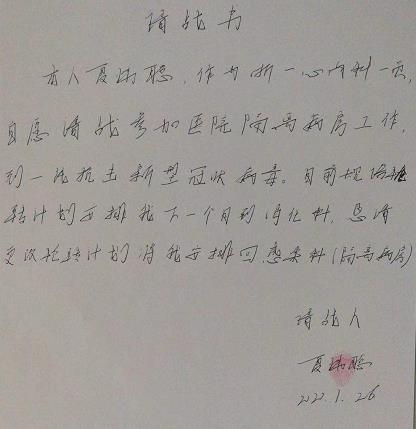 请战书
本人夏瑞聪，作为浙一心内科一员，
自愿请战参加医院隔离病房工作，
到一线抗击新型冠状病毒。目前规培
转计划安排我下一个月到消化科，恳请
更改轮转计划将我安排回感染科（隔离病房）
请战人
夏瑞聪
2020.1.26